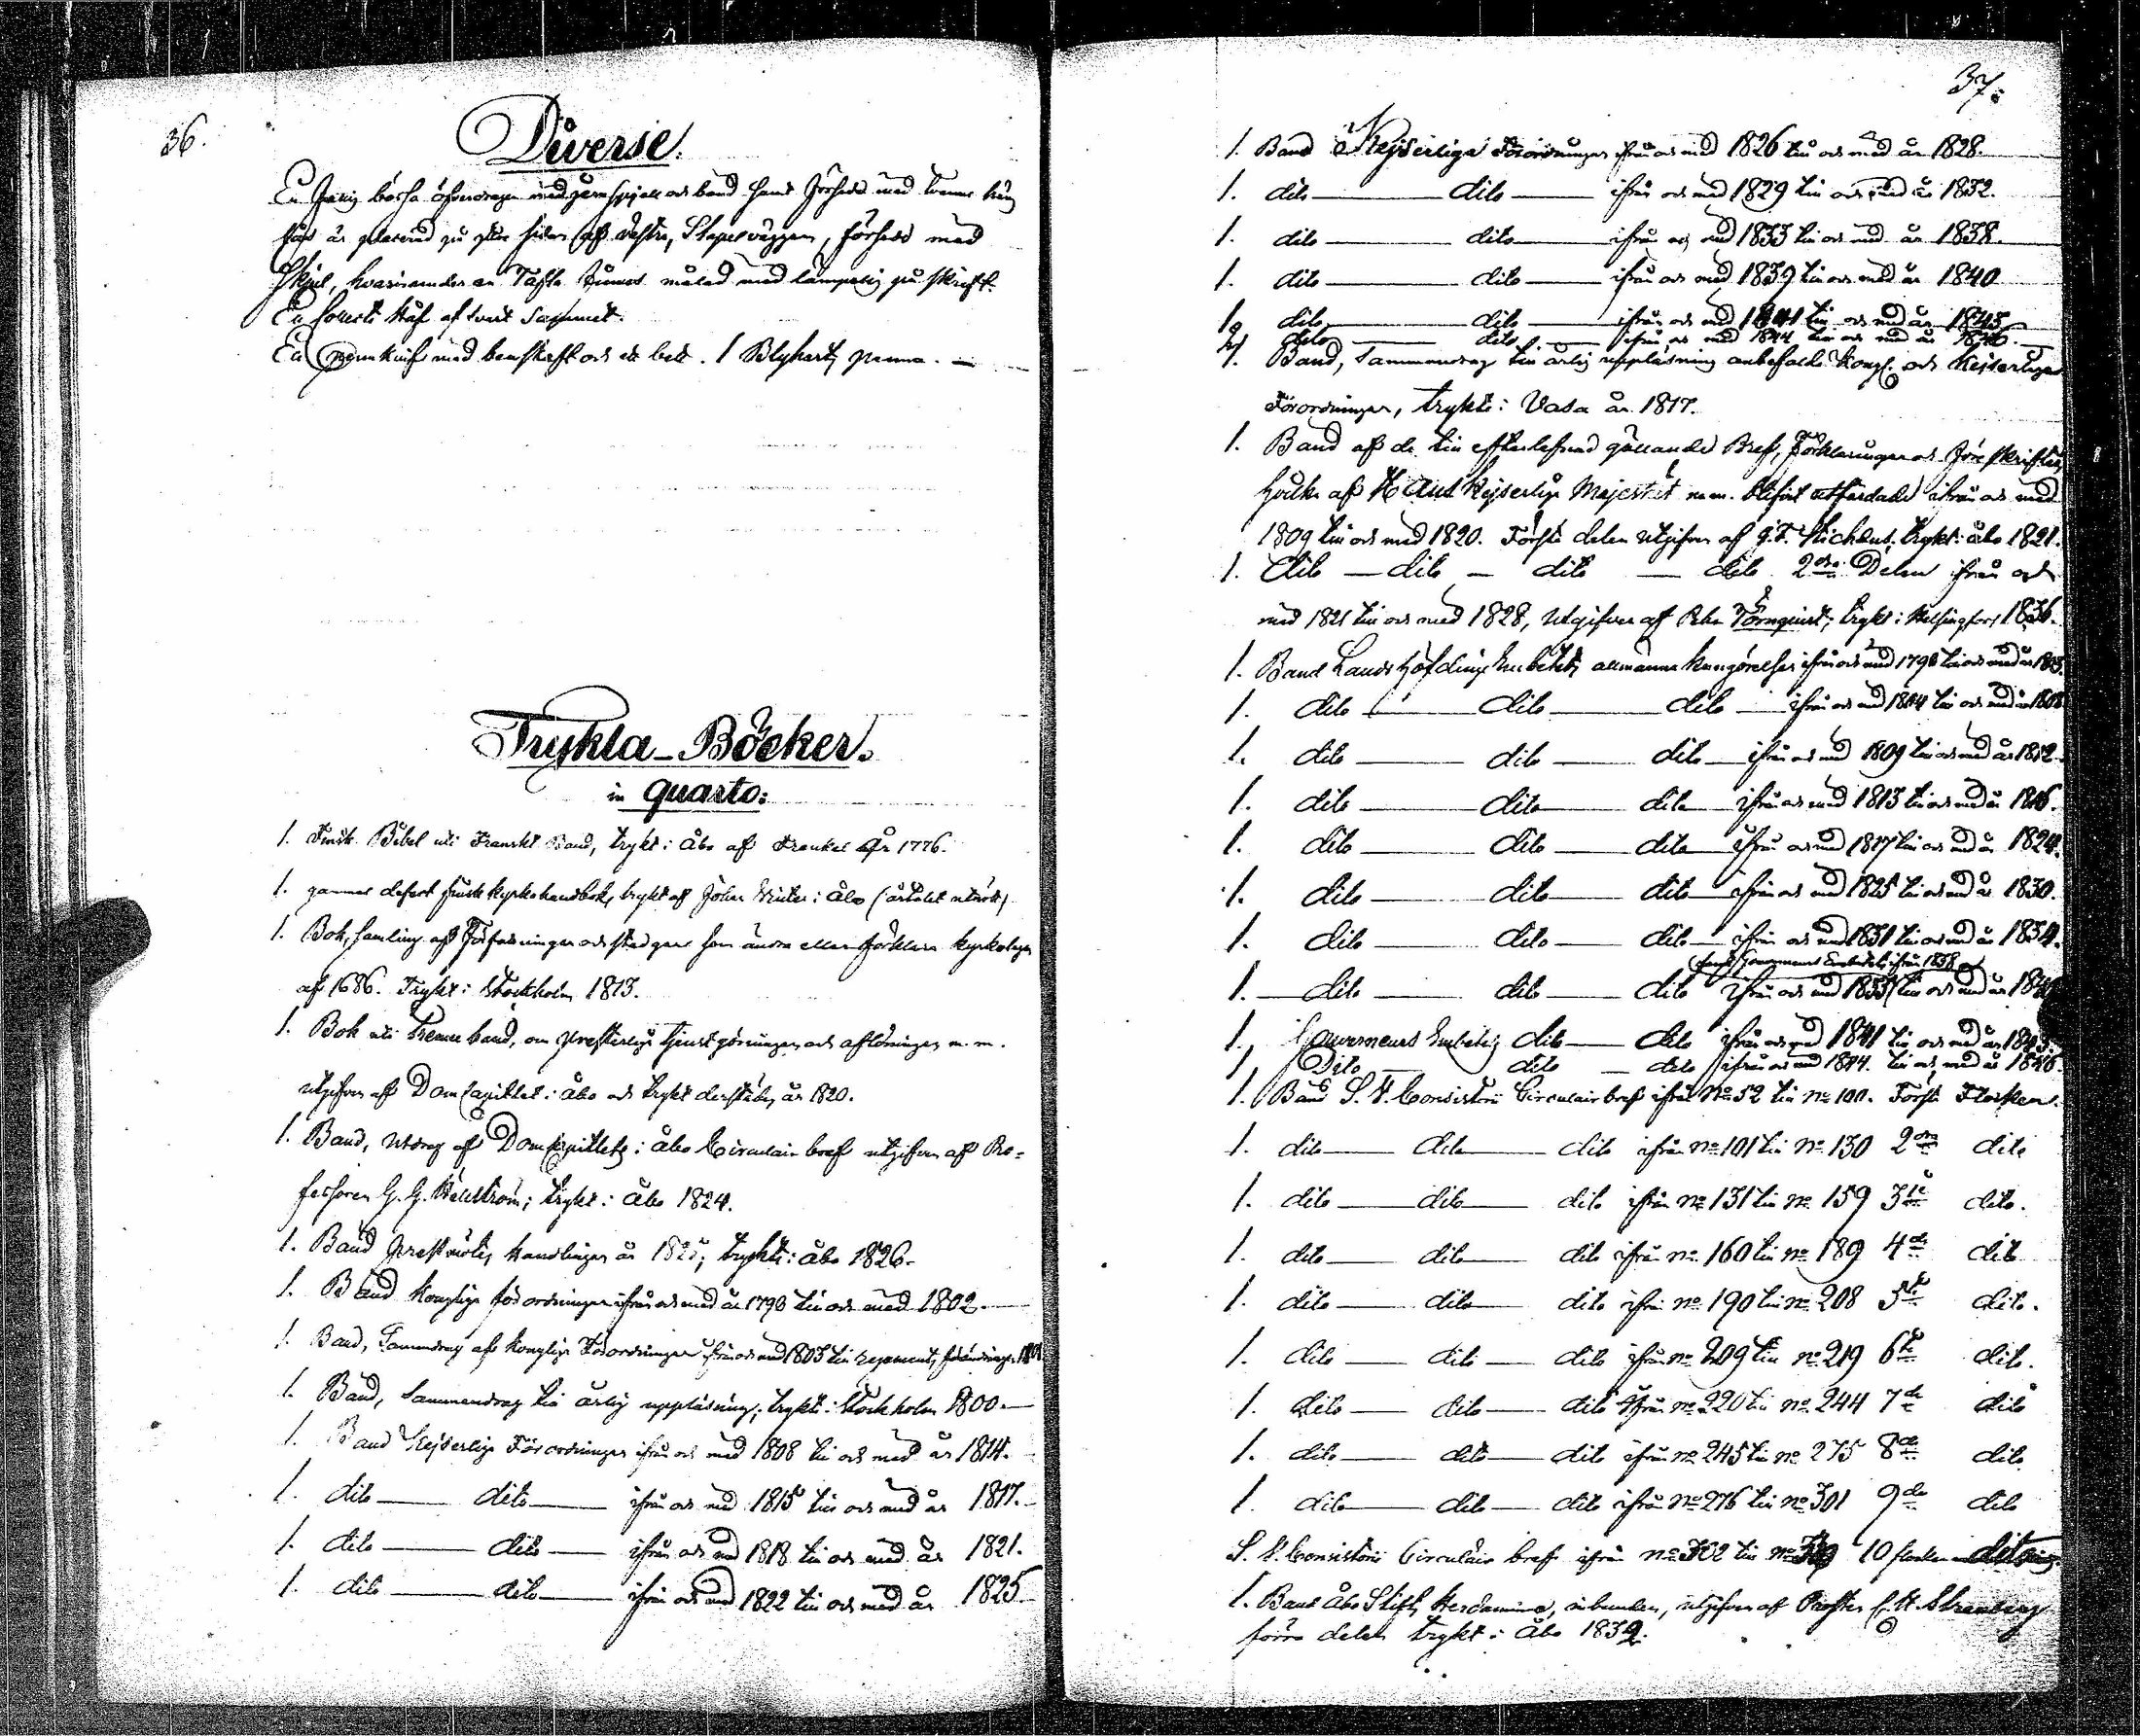 36.
Diverse.
En bössa öfverdragen med och band samt försedd med tvenne
är placerad på sidan af vestra Stapelväggen, försedd med
Skjul, hvarinunder en Tafla finnes målad med lämpelig på skrift.
En Håf af svart Sammet.
En pennknif med benskaft och ett bett. 1 Blyhartz penna. —
Trykta-Böcker.
in quarto:
1. Finsk Bibel uti Franskt Band, trykt i Åbo af Frenkel År 1776.
1. gammal defect finsk kyrkohandbok, trykt af Johan Winter i Åbo (årtalet utnött)
1. Bok, samling af Författningar och stadgar som ändra eller förklara kyrkolagen
af 1686. Trykt i Stockholm 1813.
1. Bok uti Trenne band, om Presterliga tjenstgörningar och aflöningar m.m.
utgifven af DomCapitlet i Åbo och trykt derstädes år 1820.
1. Band, utdrag af DomCapitlets i Åbo Circulair bref utgifven af Pro=
fessoren G. G. Hällström; trykt i Åbo 1824.
1. Band Prestmötes Handlingar år 1825; tryckte i Åbo 1826.
1. Band Kongliga förordningar ifrån och med år 1798 till och med 1802. —
1. Band, Sammandrag af Kongliga Förordningar ifrån och med 1803 till regements förändringen 1808
1. Band, Sammandrag till årlig uppläsning; trykt i Stockholm 1800. —
1. Band Kejserliga Förordningar ifrån och med 1808 till och med år 1814.
1. dito — dito — ifrån och med 1815 till och med år 1817.
1. dito — dito — ifrån och med 1818 till och med år 1821.
1. dito — dito — ifrån och med 1822 till och med år 1825
37.
1. Band Kejserliga Förordningar ifrån och med 1826 till och med år 1828.
1. dito — dito — ifrån och med 1829 till och med år 1832.
1. dito — dito — ifrån och med 1833 till och med år 1838.
1. dito — dito — ifrån och med 1839 till och med år 1840
1. dito — dito — ifrån och med 1841 till och med år 1843
1. dito — dito — ifrån och med 1844 till och med år 1846.
1. Band, Sammandrag till årlig uppläsning anbefalde Kongl. och Kejserliga
Förordningar, trykt i Vasa år 1817.
1. Band af de till efterlefnad gällande Bref, Förklaringar och Föreskrifter,
hvilka af Hans Kejserliga Majestät m.m. blifvit utfärdade ifrån och med
1809 till och med 1820. Förste delen utgifven af trykt i Åbo 1821.
1. Dito — dito — dito — dito 2dra Delen ifrån och
med 1821 till och med 1828, utgifven af Törnquist; trykt i Helsingfors 1836.
1. Band Landshöfdinge Embetets allmänna kungörelser ifrån och med 1798 till och med år 1803.
1. dito — dito — dito — ifrån och med 1804 till och med år 1808
1. dito — dito — dito — ifrån och med 1809 till och med år 1812.
1. dito — dito — dito — ifrån och med 1813 till och med år 1816.
1. dito — dito — dito — ifrån och med 1817 till och med år 1824.
1. dito — dito — dito — ifrån och med 1825 till och med år 1830.
1. dito — dito — dito — ifrån och med 1831 till och med år 1834.
(samt Gouverneurs Embetets ifrån 1838
1. — dito — dito — dito ifrån och med 1835 till och med år 1840
1. Gouverneurs Embetets dito — dito ifrån och med 1841 till och med år 1843.
1 Dito — dito — dito ifrån och med 1844. till och med år 1846.
1. Band S. V. Consistorii Circulair bref ifrån No 52 till No 100. Första Flocken.
1. dito — dito — dito ifrån No 101 till No 130 2dra dito
1. dito — dito — dito ifrån No 131 till No 159 3dje dito.
1. dito — dito — dito ifrån No 160 till No 189 4de dito
1. dito — dito — dito ifrån No 190 till No 208 5te dito.
1. dito — dito — dito ifrån No 209 till No 219 6te dito.
1. dito — dito — dito ifrån No 220 till No 244 7de dito
1. dito — dito — dito ifrån No 245 till No 275 8de dito
1. dito — dito — dito ifrån No 276 till No 301 9de dito
S. V. Consistorii Circulair bref ifrån No 302 till No 10 flocken
1. Band Åbo Stifts Herdaminne, inbunden, utgifven af Prosten C. H. Strandberg
förra delen trykt i Åbo 1832.